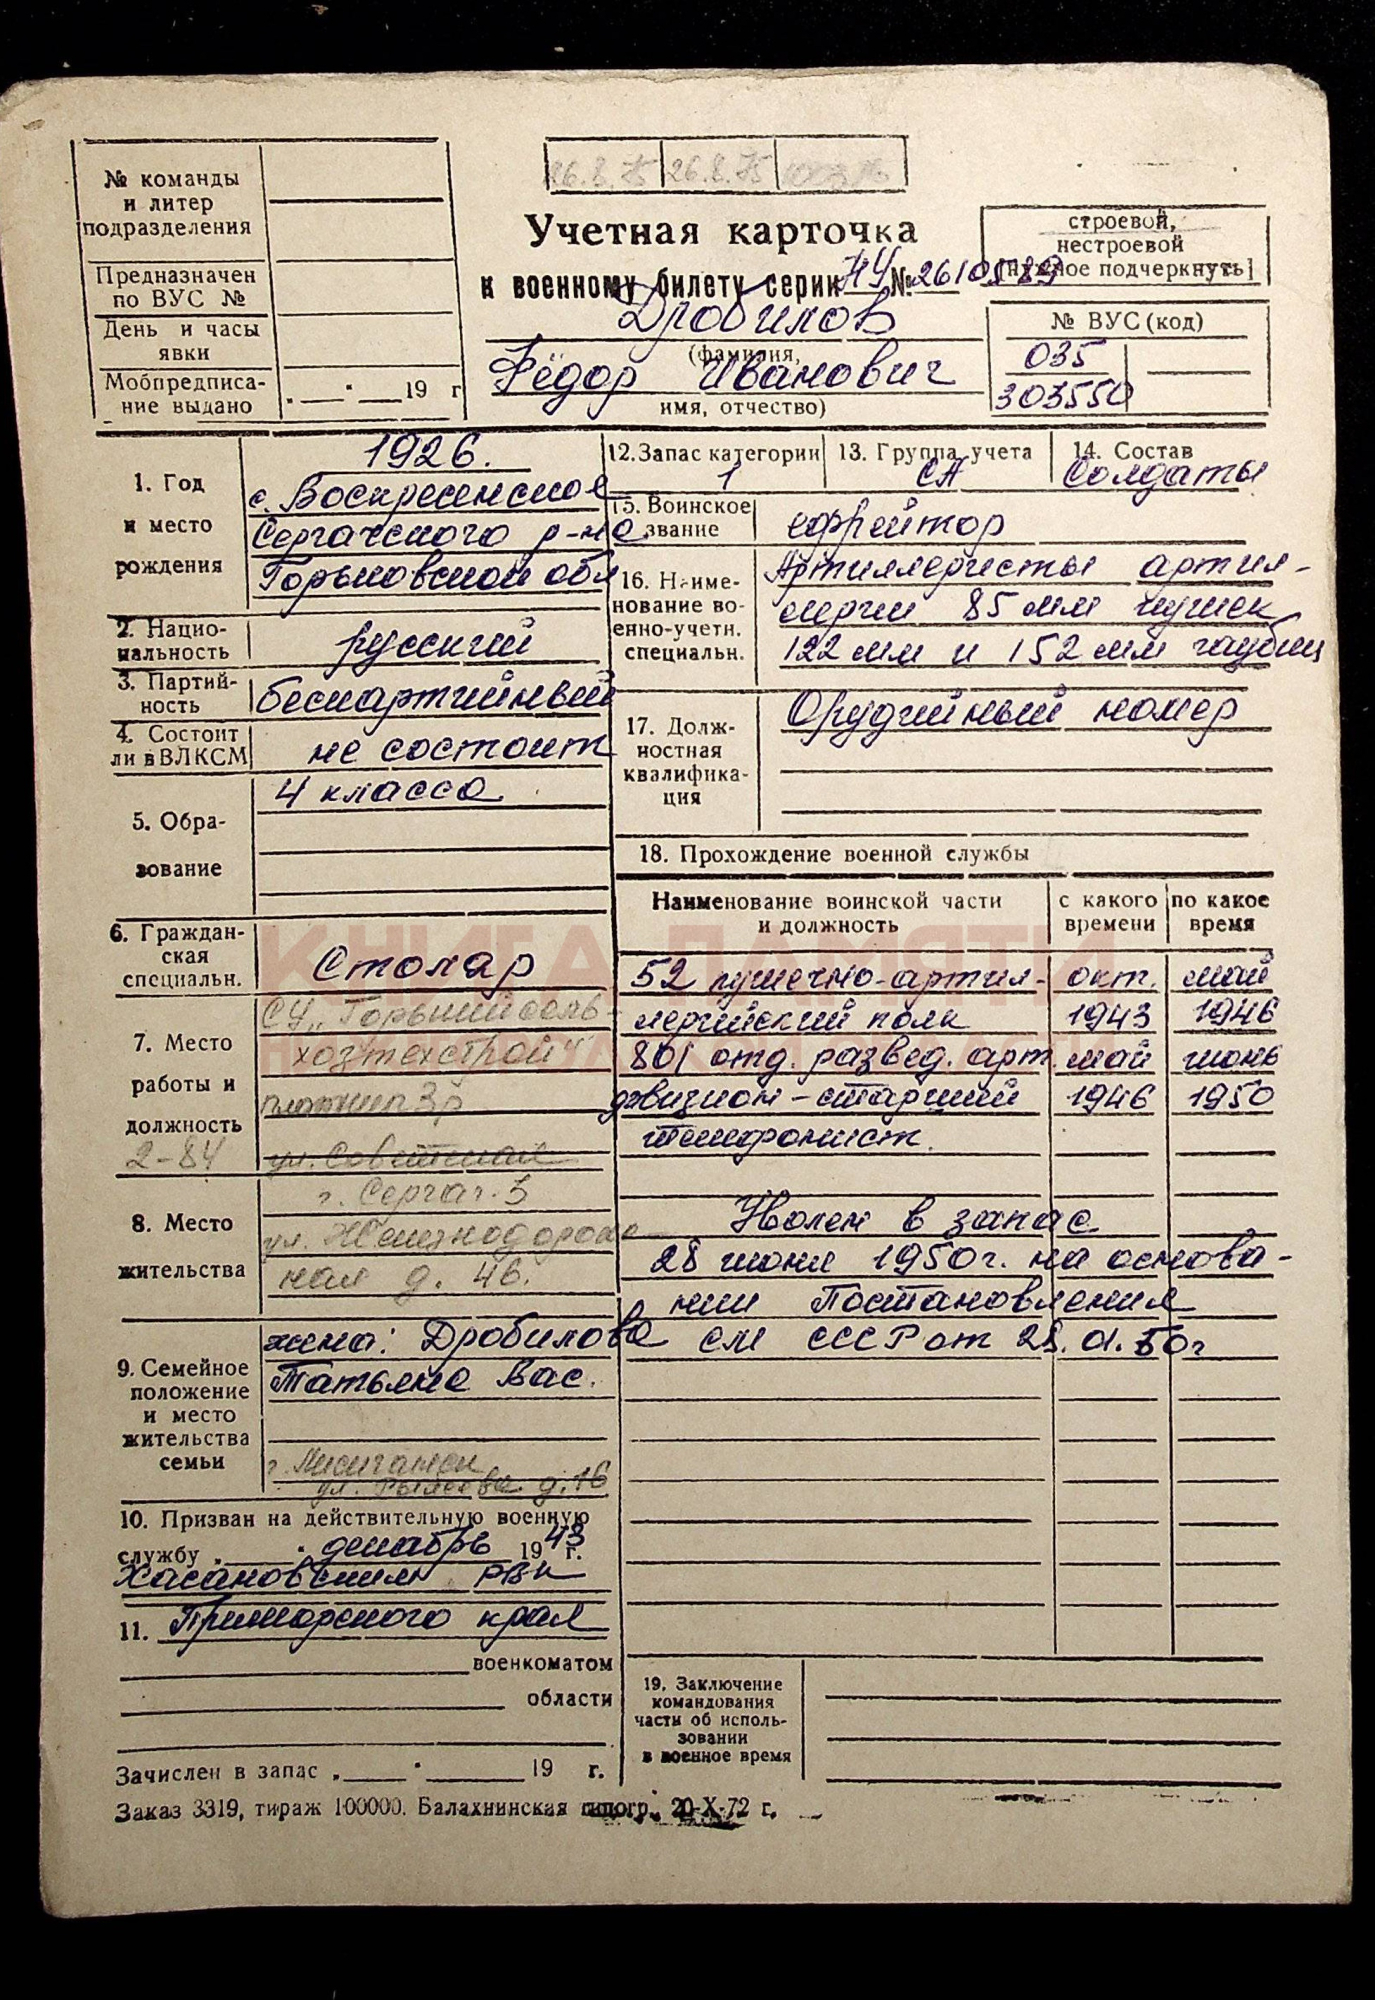 № команды
и литер
подразделения
Предназначен
по ВУС №
День и часы
явки
Мобпредписа-
ние выдано
19 г
26.8.75 26.8.75
Учетная карточка
к военному билету серии НУ № 2610589
Дробилов
(фамилия,
Фёдор Иванович
имя, отчество)
строевой,
нестроевой
[нужное подчеркнуть]
№ ВУС (код)
035
303550
1. Год
и место
рождения
1926.
с. Воскресенское
Сергачского р-на
Горьковской обл
2. Нацио-
нальность
русский
3. Партий-
ность
беспартийный
4. Состоит
ли в ВЛКСМ
не состоит
5. Обра-
зование
4 класса
6. Граждан-
ская
специальн.
Столяр
7. Место
работы и
должность
2-84
СУ „Горький сель-
хозтехстрой"
плотник 3р
ул. Советская
8. Место
жительства
г. Сергач-3
ул. Железнодорож
ная д. 46.
9. Семейное
положение
и место
жительства
семьи
жена: Дробилова
Татьяна Вас.
ул. Рылеева д. 16
10. Призван на действительную военную
службу „ " декабрь 1943 г.
Хасановским РВК
11. Приморского края
военкоматом
области
Зачислен в запас „ " 19 г.
Заказ 3319, тираж 100000. Балахнинская типогр. 20-X-72 г.
12. Запас категории
1
13. Группа учета
СА
14. Состав
Солдаты
15. Воинское
звание
ефрейтор
16. Наиме-
нование во-
енно-учетн.
специальн.
Артиллеристы артил-
лерии 85 мм пушек
122 мм и 152 мм гаубиц
17. Долж-
ностная
квалифика-
ция
Орудийный номер
18. Прохождение военной службы
Наименование воинской части
и должность
с какого
времени
по какое
время
52 пушечно-артил- окт. май
лерийский полк 1943 1946
801 отд. развед. арт. май июнь
дивизион - старший 1946 1950
телефонист.
Уволен в запас
28 июня 1950г. на основа-
нии Постановления
СМ СССР от 28.01.50г
19. Заключение
командования
части об исполь-
зовании
в военное время
КНИГА ПАМЯТИ